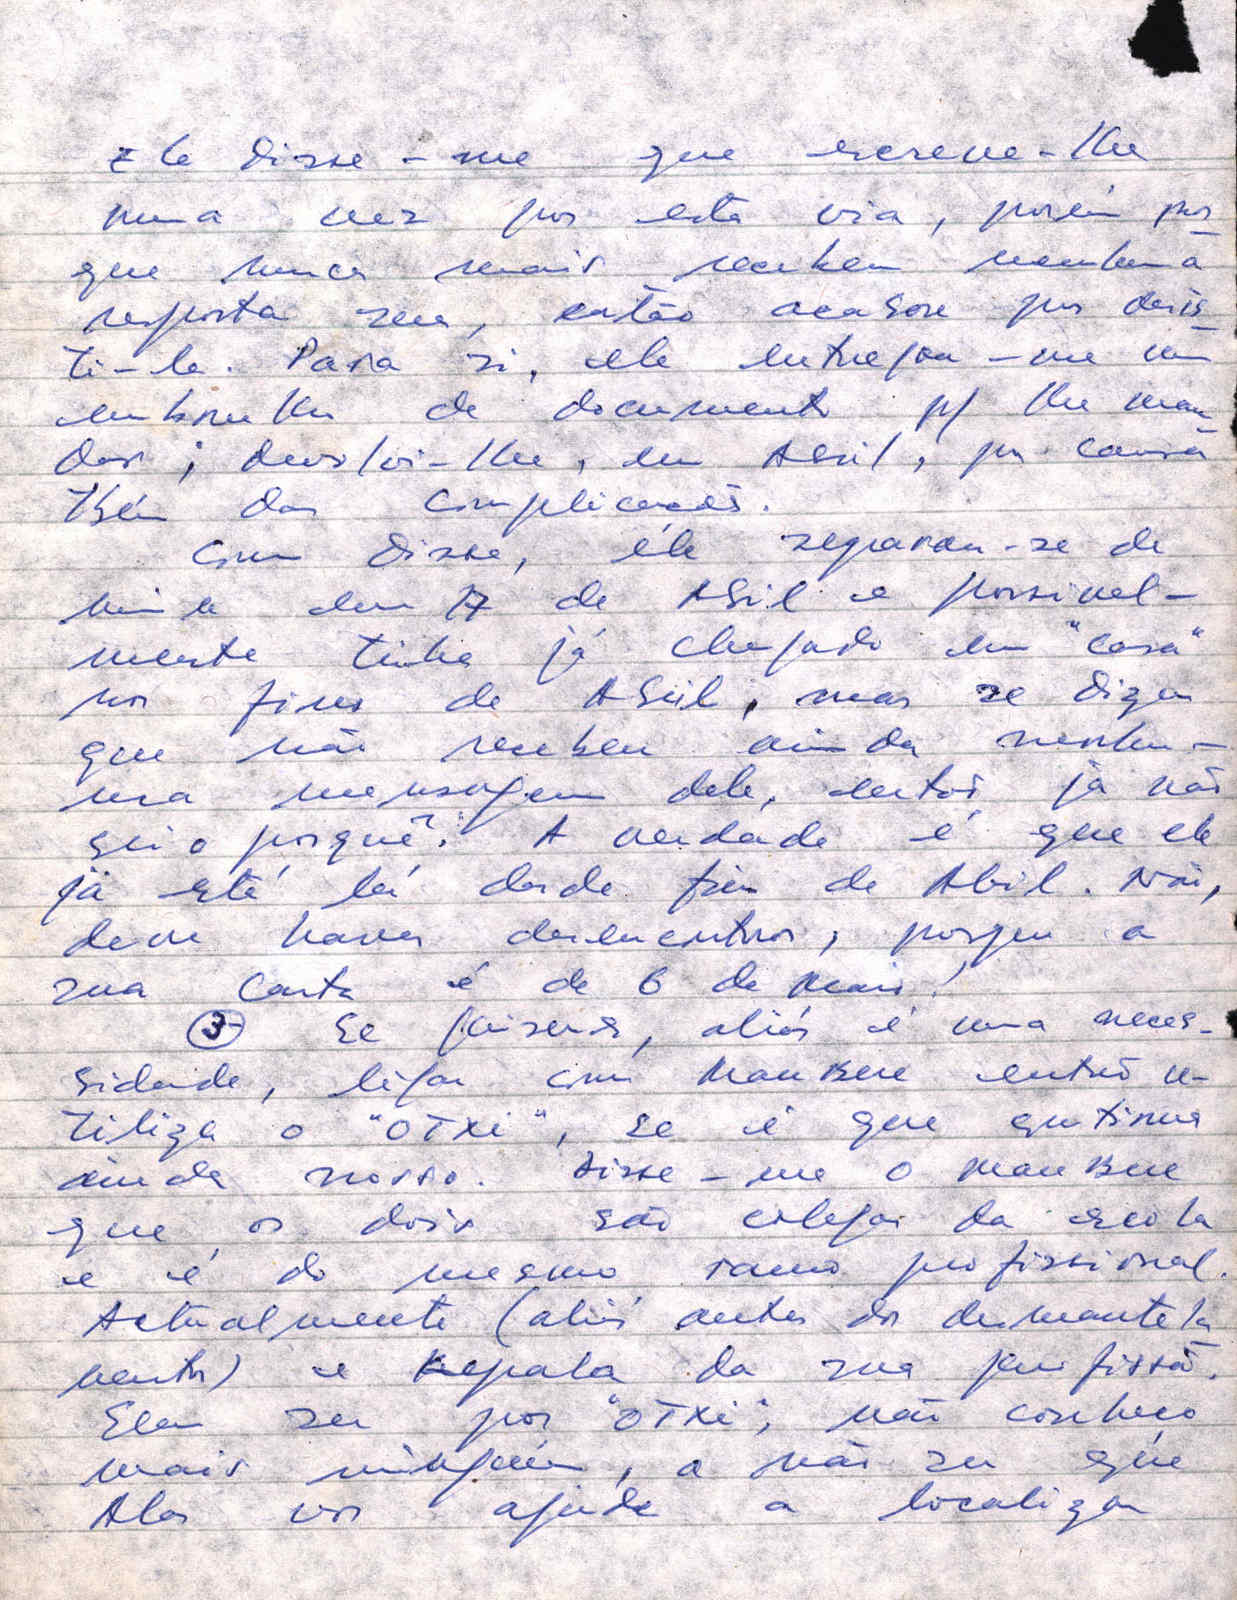 Ele disse-me que escreve-lhe
uma vez por esta via, porém por_
que nunca mais recebeu nenhuma
resposta sua, então acabou por desis_
ti-la. Para si, ele entregou-me um
embrulho de documento p/ lhe man_
dar; devolvi-lhe, em Abril, por causa
tbém das complicações.
Como disse, ele separou-se de
mim em 17 de Abril e possivel-
mente tinha já chegado em "casa"
nos fins de Abril, mas se diz
que não recebeu ainda nenhu-
ma mensagem dele, então já não
sei o porquê? A verdade é que ele
já está lá desde fim de Abril. Não,
deve haver desencontros, porque a
sua carta é de 6 de Maio!
3- Se quiseres, aliás é uma neces-
sidade, ligar com Mau Bere então u-
tiliza o "OTXI", se é que continua
ainda nosso. Disse-me o Mau Bere
que os dois são colegas da escola
e é do mesmo ramo profissional.
Actualmente (aliás antes do desmantela_
mento) e da sua profissão.
Sem ser por "OTXI", não conheço
mais ninguém, a não ser que
Alas vos ajude a localizar